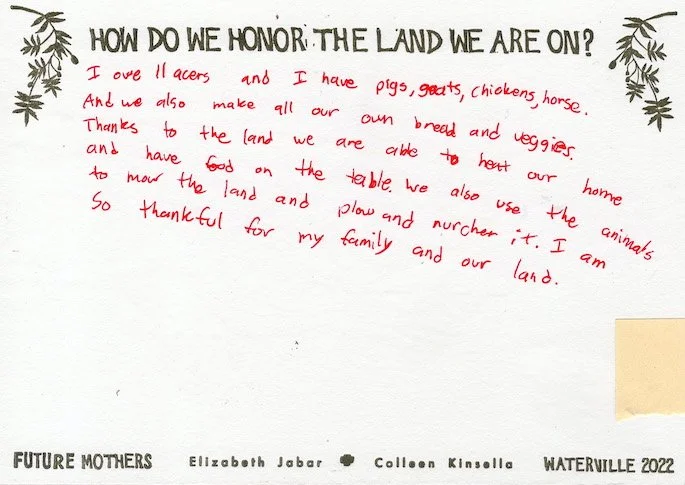 HOW DO WE HONOR THE LAND WE ARE ON?
I owe 11 acers and I have pigs, goats, chickens, horse.
And we also make all our own bread and veggies.
Thanks to the land we are able to heat our home
and have food on the table. We also use the animals
to mow the land and plow and nurcher it. I am
So thankful for my family and our land.
FUTURE MOTHERS Elizabeth Jabar Colleen Kinsella WATERVILLE 2022